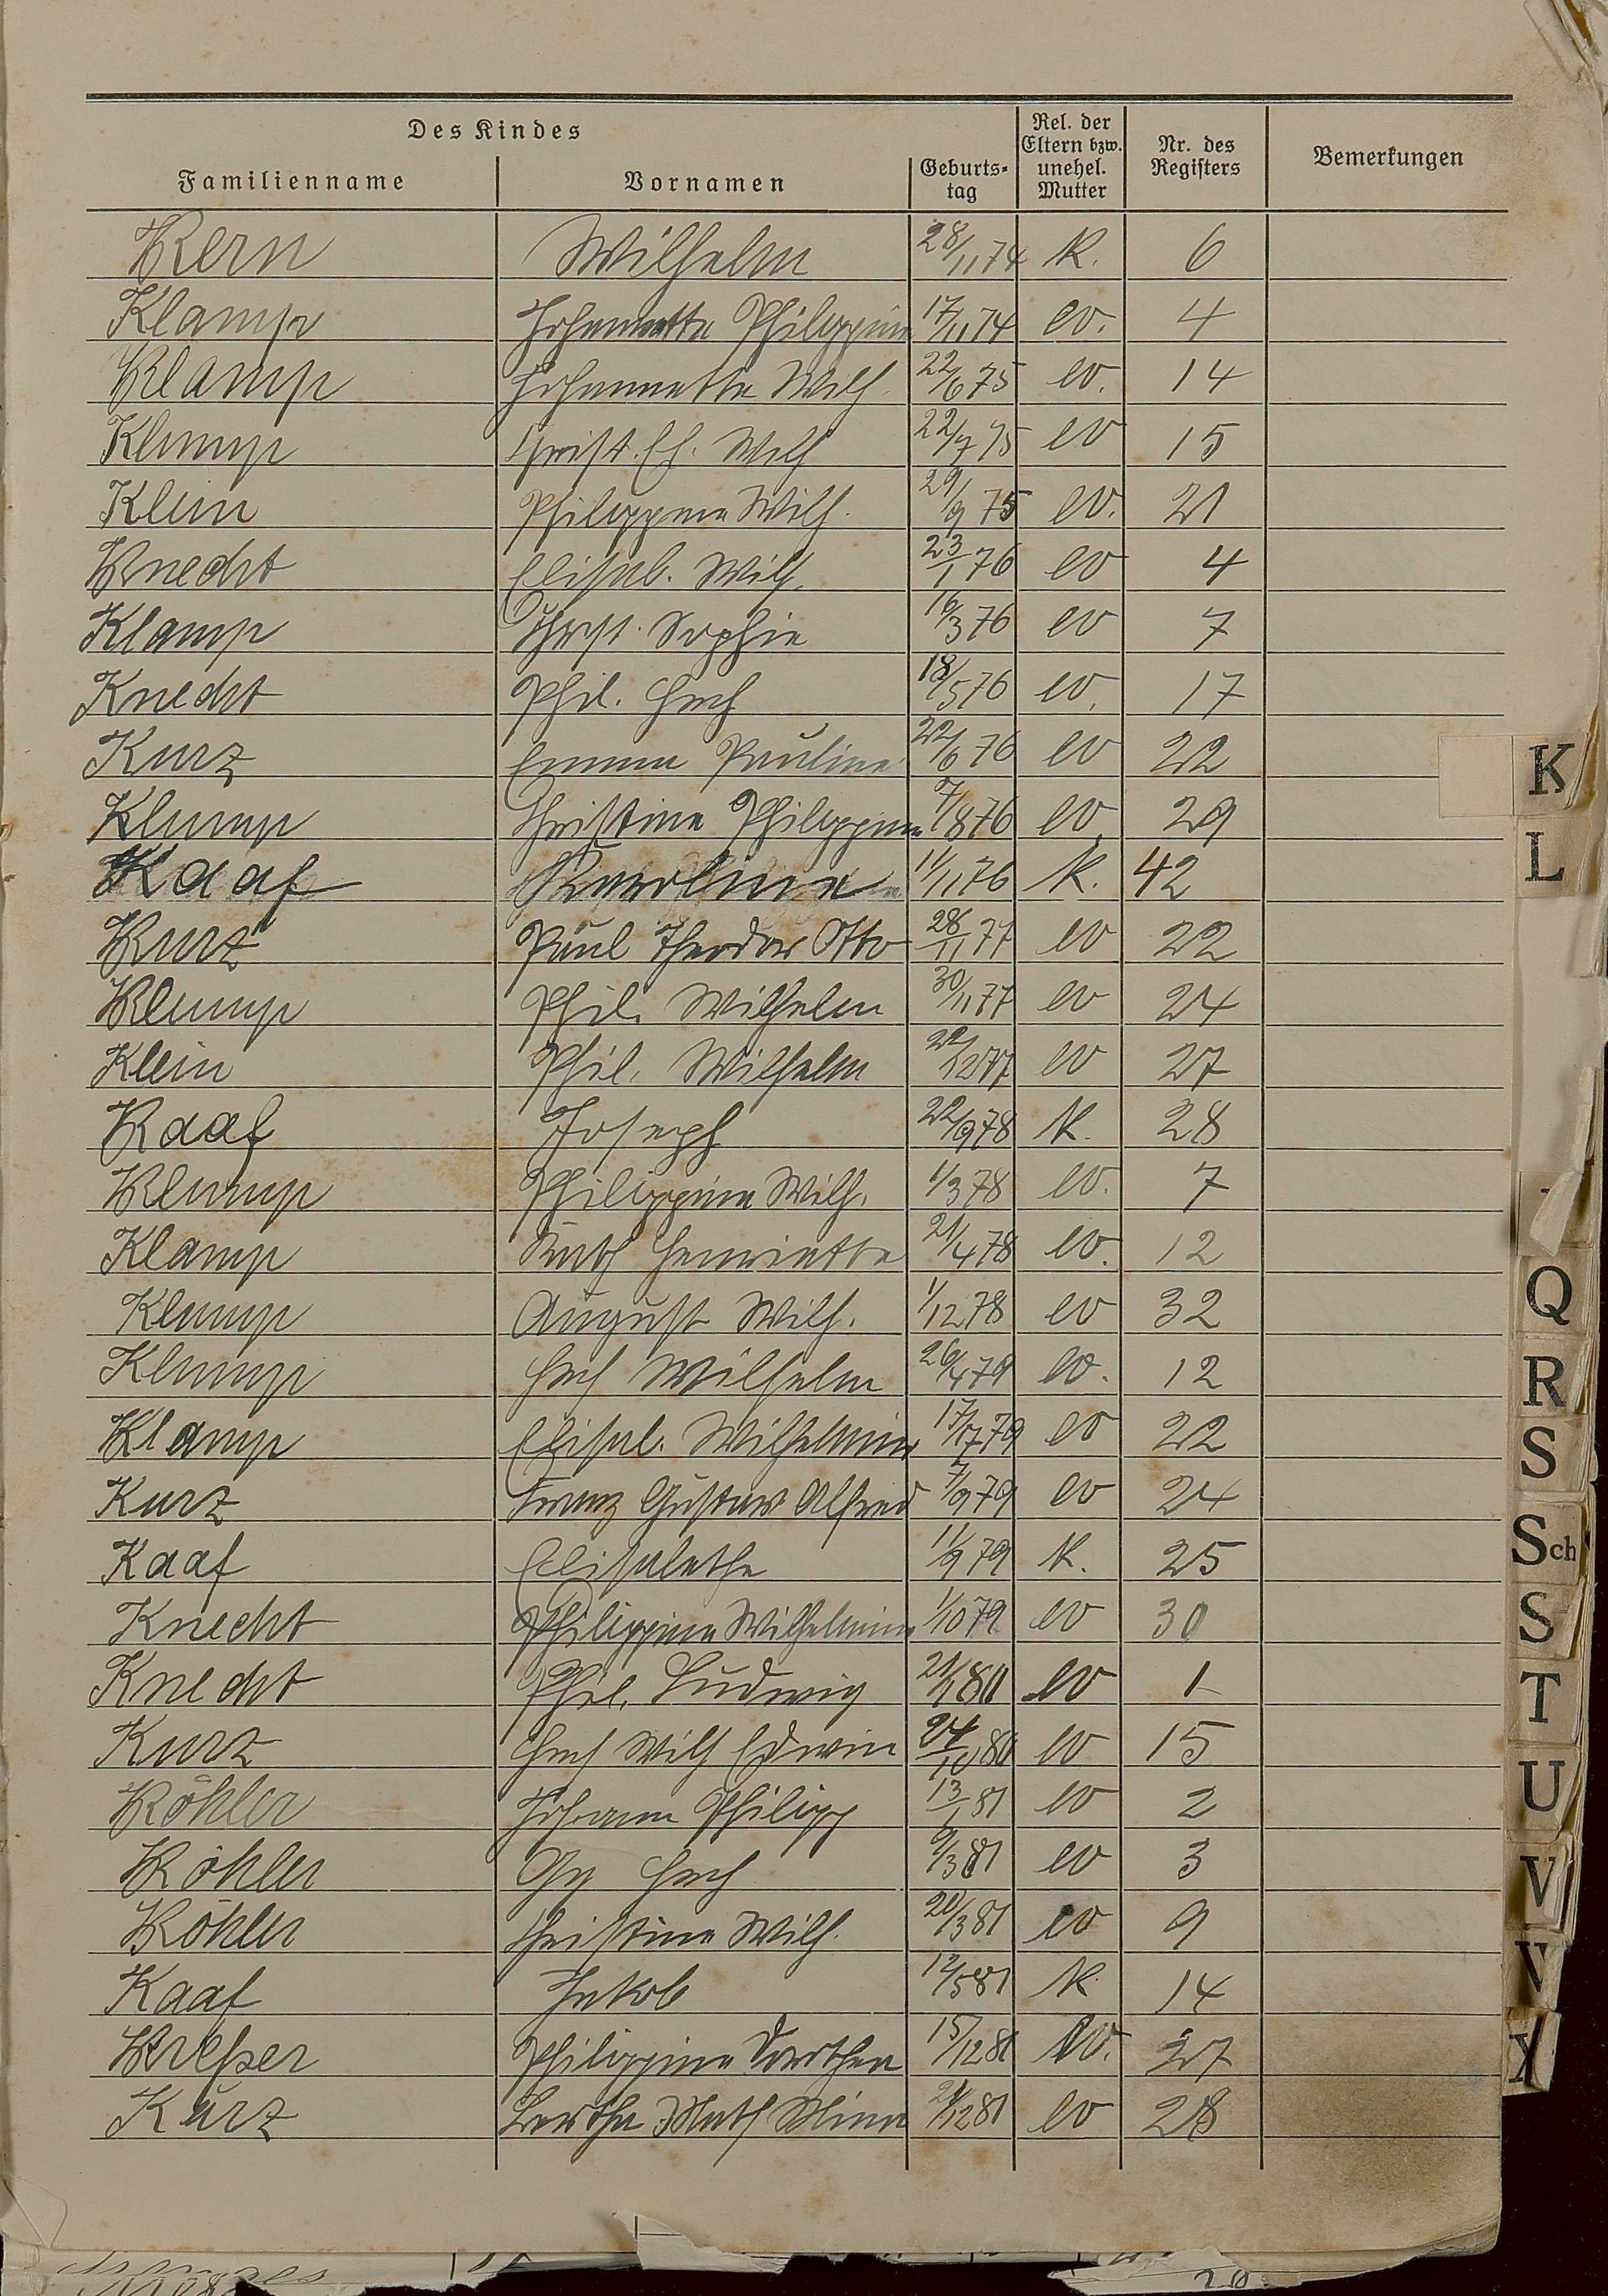 Des Kindes
Familienname Vornamen Geburts-tag Rel. der Eltern bzw. unehel. Mutter Nr. des Registers Bemerkungen
Kern Wilhelm 28/11 74 K. 6
Klamp Johannette Philippine 17/11 74 ev. 4
Klamp Johannette Wilh. 22/6 75 ev. 14
Klump Christ. Wilh 22/7 75 ev 15
Klein Philippine Wilh. 29/9 75 ev. 21
Knecht Elisab. Wilh. 23/1 76 ev 4
Klamp Christ. Sophie 16/3 76 ev 7
Knecht Phil. Hrch 18/5 76 ev. 17
Kurz Emma Pauline 22/6 76 ev 22
Klump Christine Philippine 7/8 76 ev. 29
Kaaf Karoline 11/11 76 K. 42
Kurz Paul Theodor Otto 28/11 77 ev 22
Klump Phil. Wilhelm 30/11 77 ev 24
Klein Phil. Wilhelm 22/12 77 ev 27
Kaaf Joseph 22/9 78 K. 28
Klump Philippine Wilh. 1/3 78 ev. 7
Klamp Kath Henriette 21/4 78 ev. 12
Klump August Wilh. 1/12 78 ev 32
Klump Hrch Wilhelm 26/4 79 ev. 12
Klamp Elisab. Wilhelmine 17/7 79 ev 22
Kurz Franz Gustav Alfred 7/9 79 ev 24
Kaaf Elisabethe 11/9 79 K. 25
Knecht Philippine Wilhelmine 1/10 79 ev 30
Knecht Phil. Ludwig 21/1 80 ev 1
Kurz Hrch Wilh Edwin 24/10 80 ev 15
Köhler Johann Philipp 13/1 81 ev 2
Köhler Gg Hrch 9/3 81 ev 3
Köhler Christine Wilh. 20/3 81 ev 9
Kaaf Jakob 12/5 81 K. 14
Kreßer Philippine Dorothea 15/12 81 ev. 27
Kurz Bertha Math Mina 21/12 81 ev 28
K
L
Q
R
S
Sch
S
T
U
V